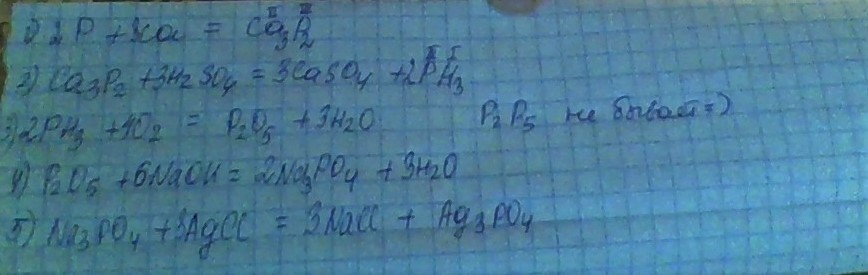 1) 2P + 3Ca = Ca₃P₂ II III
2) Ca₃P₂ + 3H₂SO₄ = 3CaSO₄ + 2PH₃ III I
3) 2PH₃ + 4O₂ = P₂O₅ + 3H₂O P₂P₅ не бывает =)
4) P₂O₅ + 6NaOH = 2Na₃PO₄ + 3H₂O
5) Na₃PO₄ + 3AgCl = 3NaCl + Ag₃PO₄